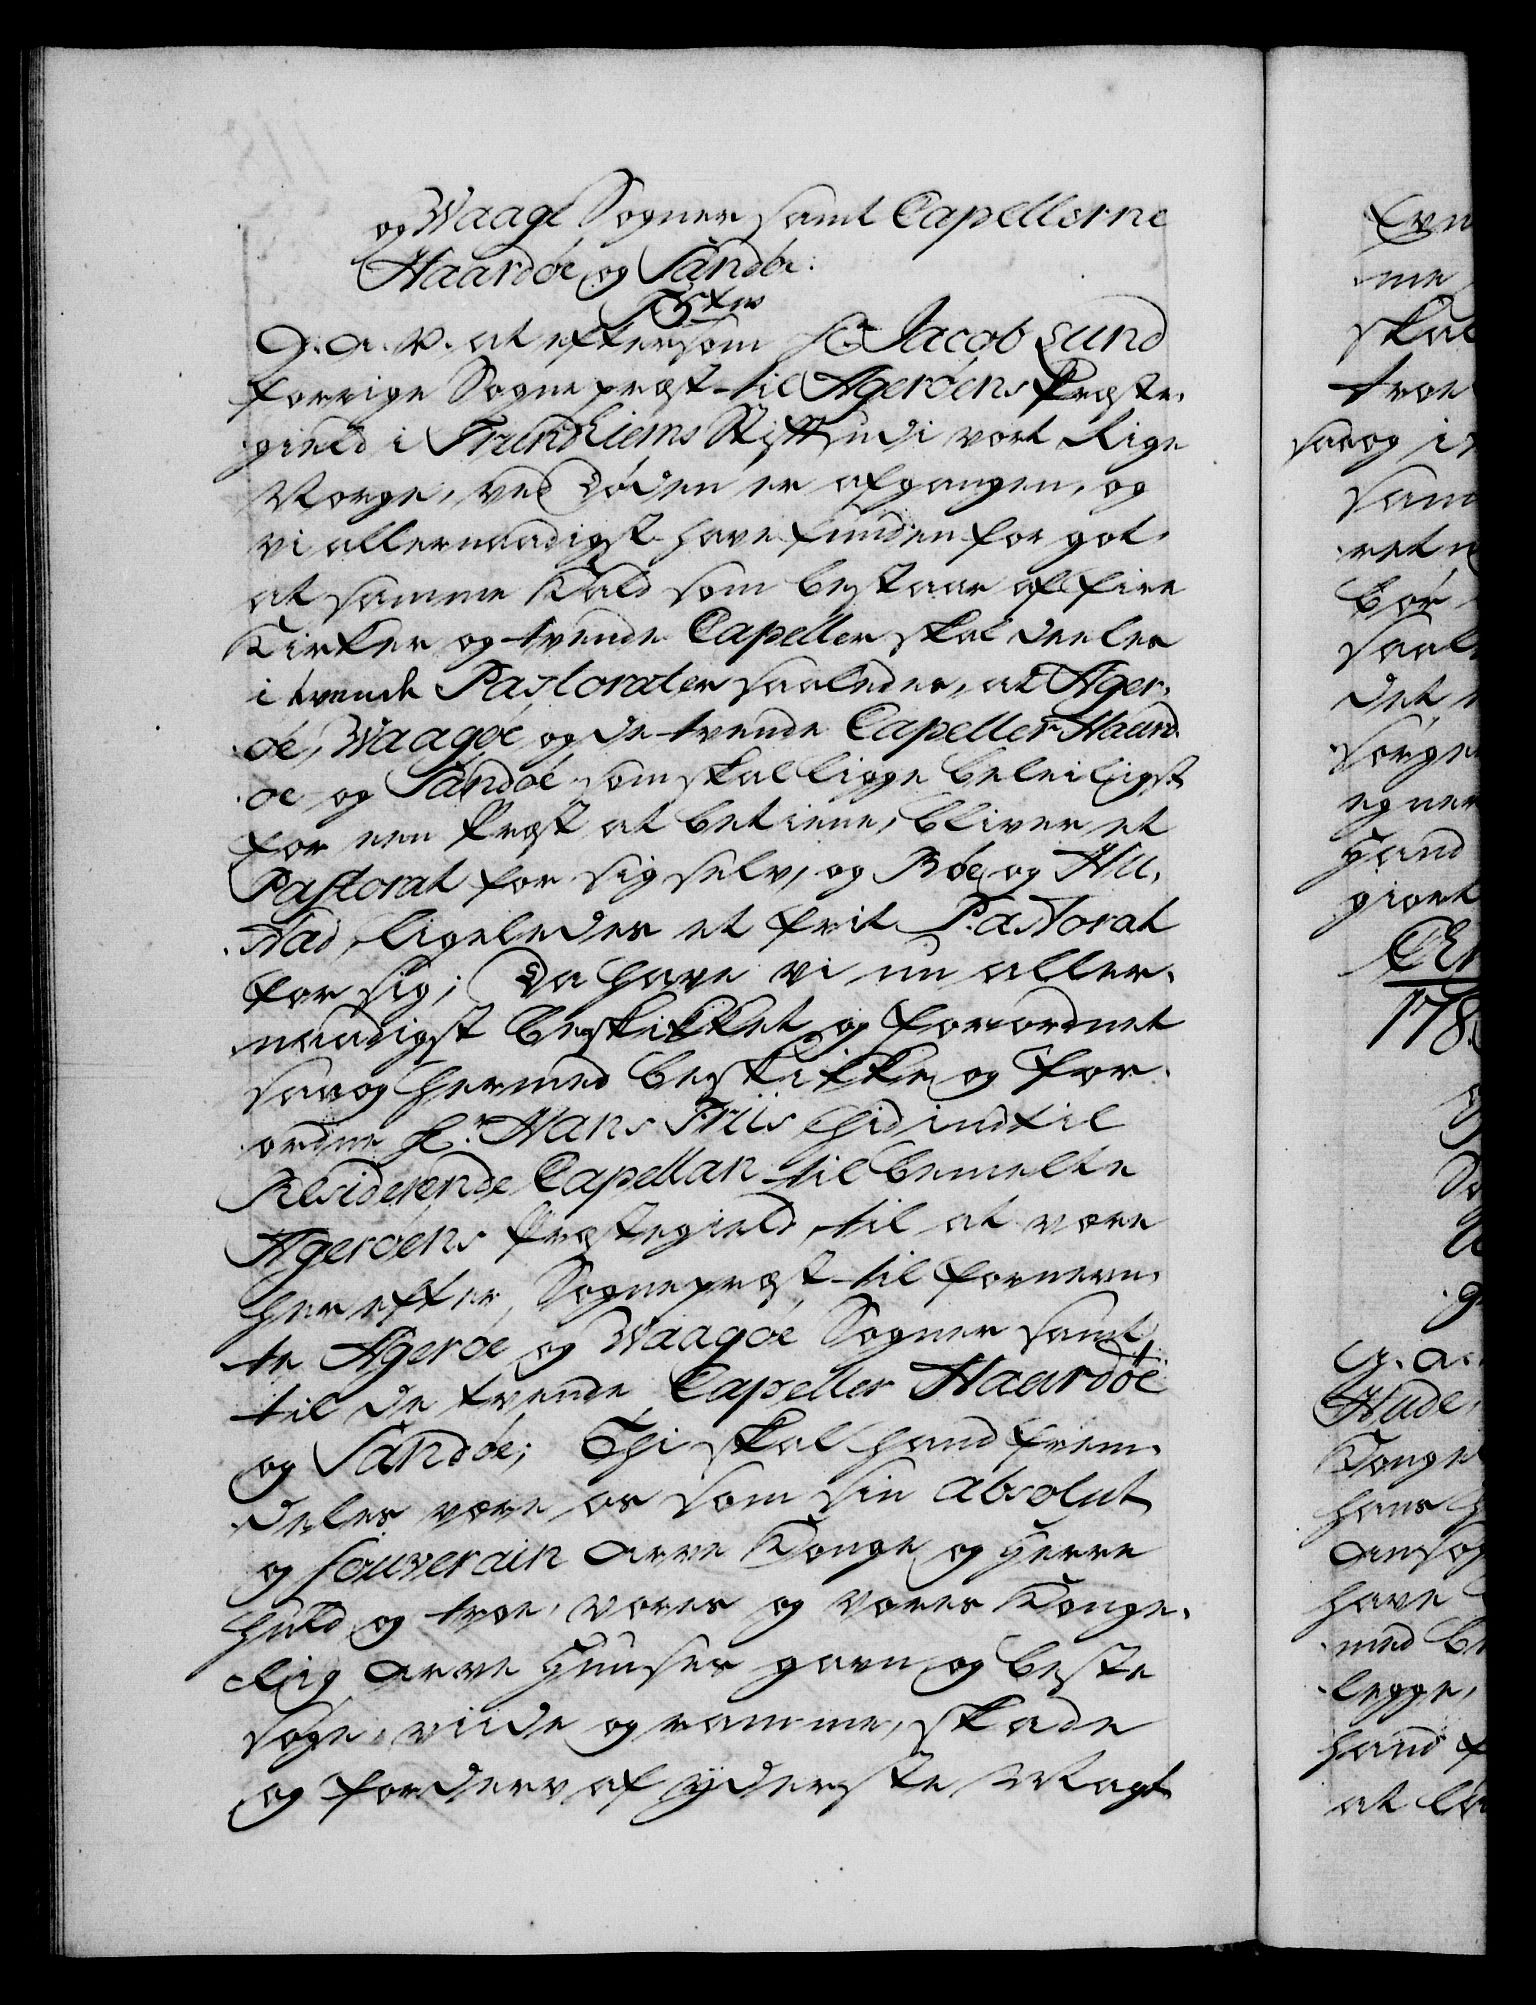 og Waage Sogner samt Capellerne
Haardøe og Sandøe.
G. A. V. at eftersom Hr Jacob Sund
forrige Sogne præst til Agerøens Præste-
gield i Trundhiems Stift udi vort Rige
Norge, ved Døden er afgangen, og
vi allernaadigst have funden for got,
at samme Kald som bestaar af fire
Kirker og tvende Capeller skal deeles
i tvende Pastorater saaledes, at Ager-
øe, Waagøe og de tvende Capeller Haard-
øe og Sandøe som skal ligge beleiligst
for een Præst at betiene, bliver et
Pastorat for sig selv, og Bøe og Hu-
stad, ligeledes et frit Pastorat
for sig; Da have vi nu aller-
naadigst beskikket og forordnet
saa og hermed beskikke og for-
ordne Hr. Hans Friis hid indtil
Residerende Capellan til bemelte
Agerøens Præstegield, til at være
herefter Sognepræst til fornevn-
te Agerøe og Waagøe Sogner samt
til de tvende Capeller Haardøe
og Sandøe; Thi skal hand frem-
deles være os som sin absolut
og souverain Arve Konge og Herre
huld og troe, vores og vores Konge-
lig Arve Huuses gavn og beste
søge, viide og ramme, skade
og forderv af yderste Magt